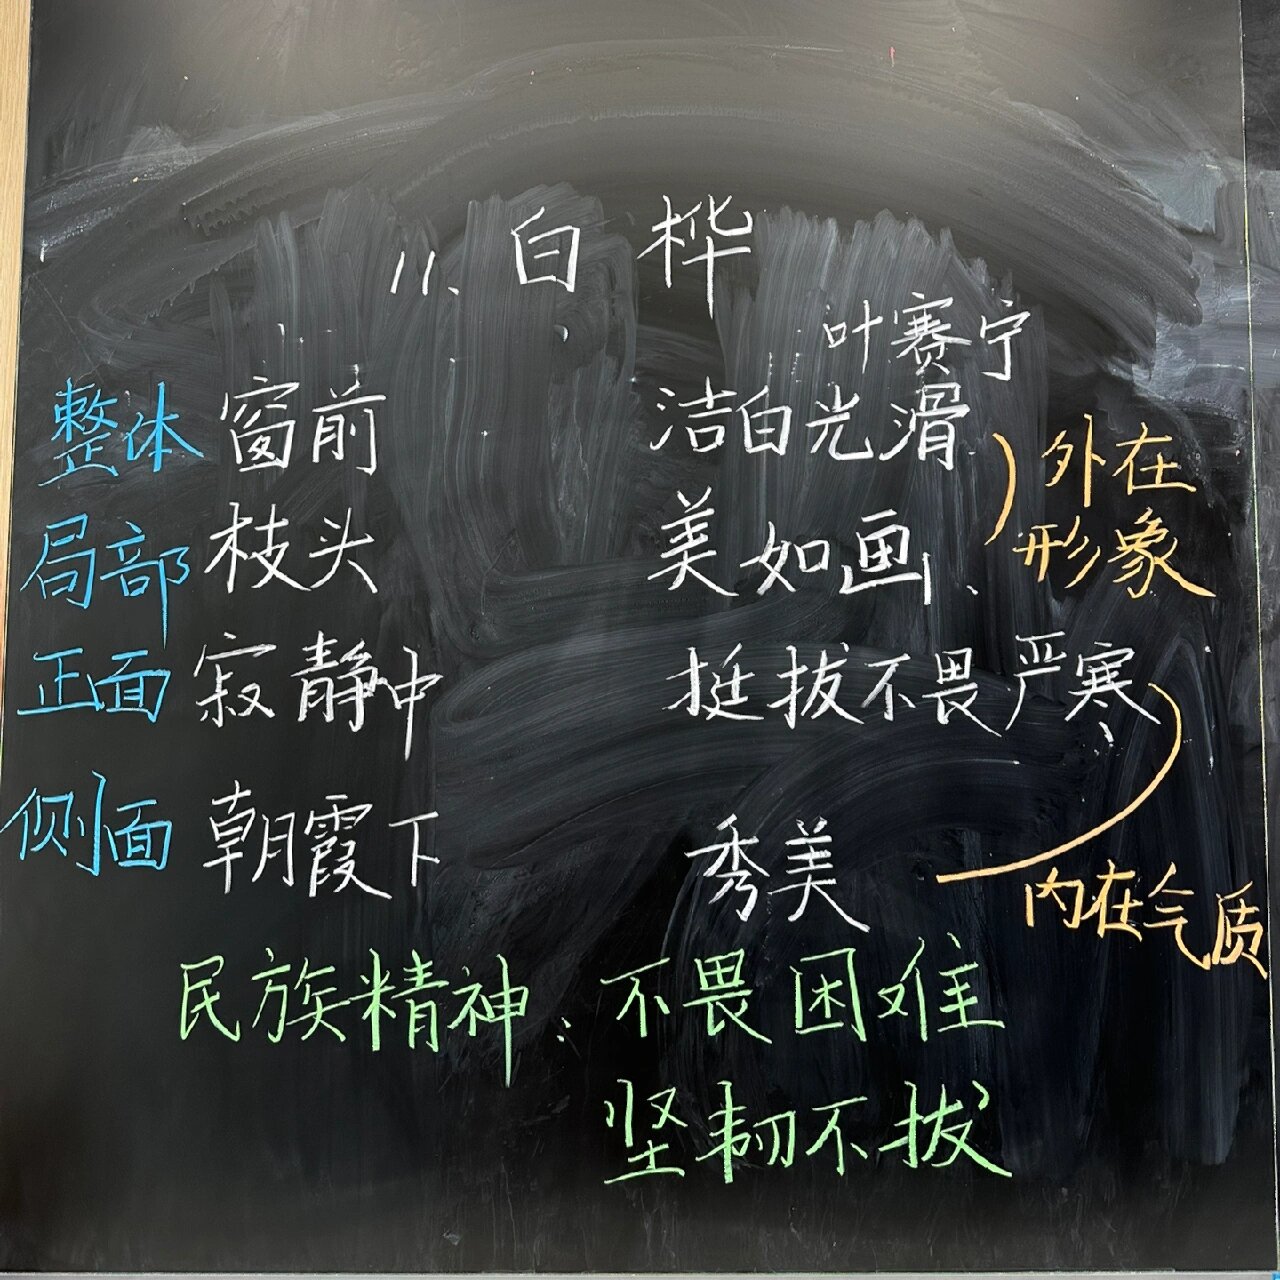 11、白桦
叶赛宁
整体 窗前 洁白光滑
外在
局部 枝头 美如画、
形象
正面 寂静中 挺拔不畏严寒
侧面 朝霞下 秀美
内在气质
民族精神：不畏困难
坚韧不拔